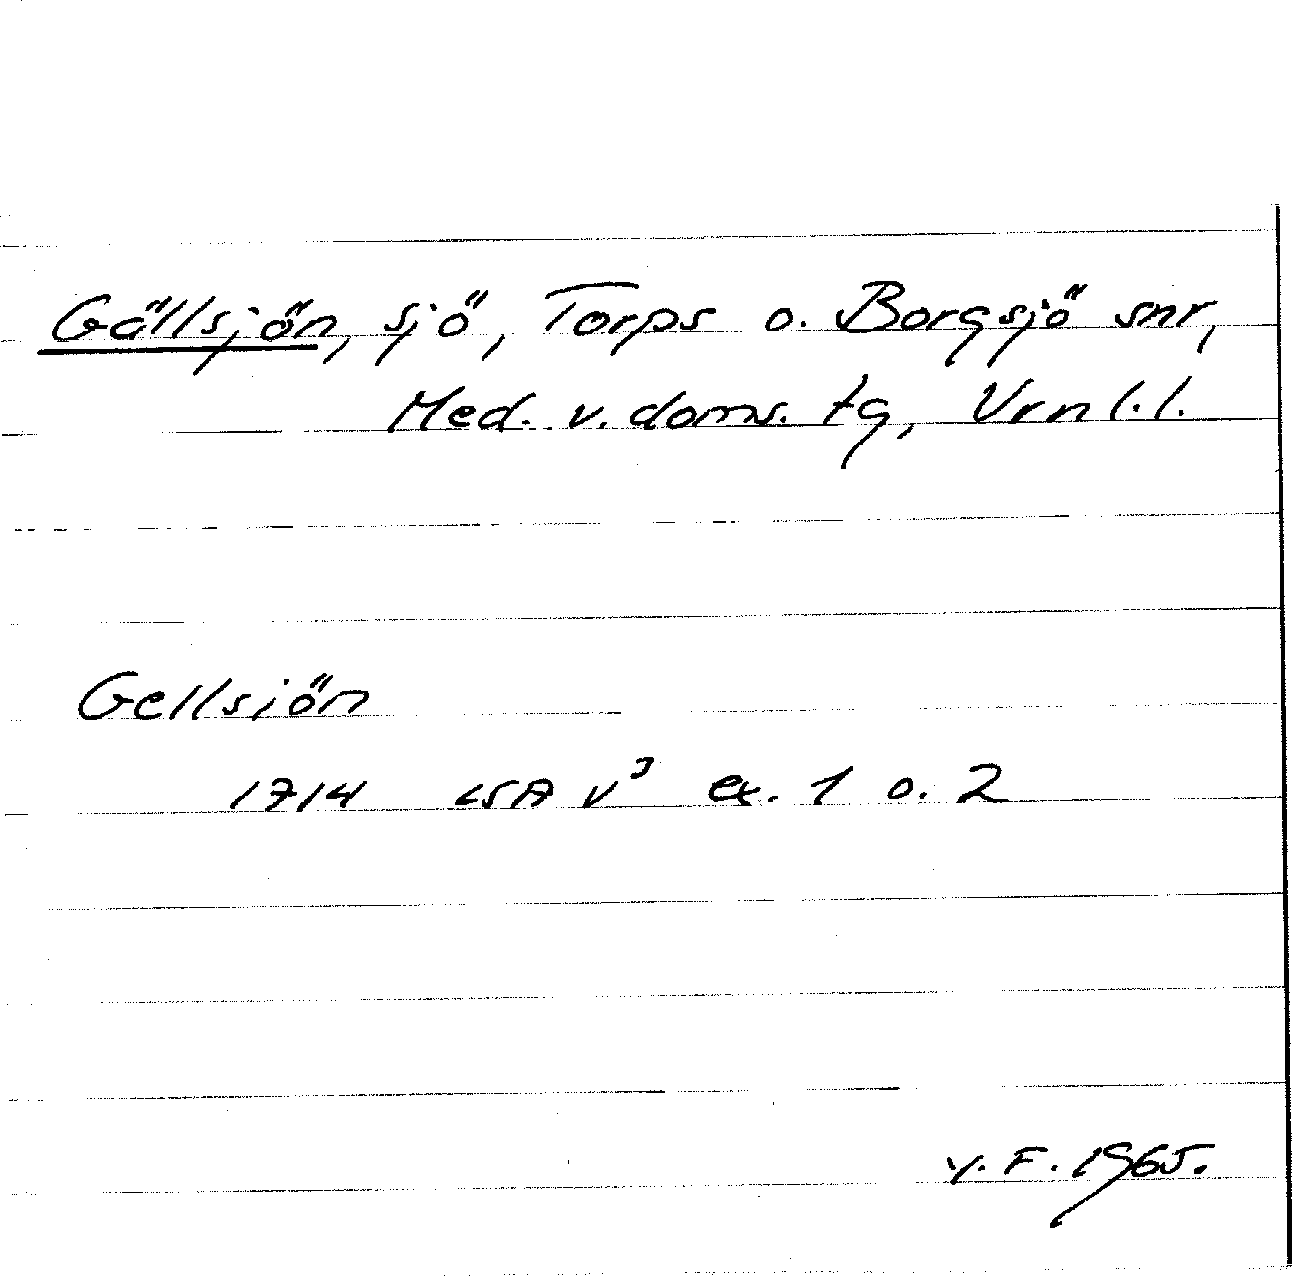 Gällsjön, sjö, Torps o. Borgsjö snr,
Med. v. doms. tg, Vrnl.l.
Gellsiön
1714 LSA v³ ex. 1 o. 2
Y. F. 1965.